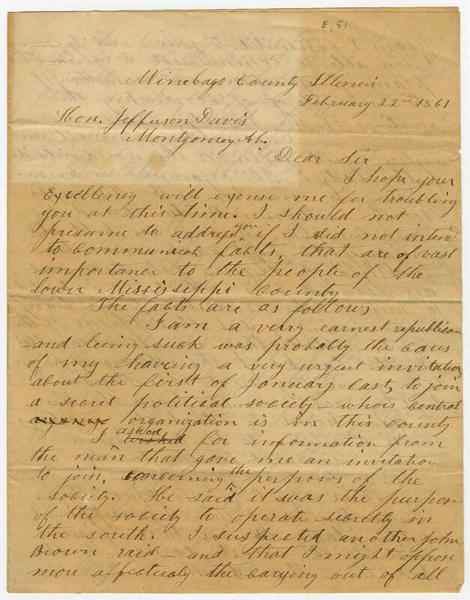 E, 51
Winebago County Illinois
February 22nd 1861
Hon. Jefferson Davis
Montgomey Al.
Dear Sir
I hope your
Excellency will excuse me for troubling
you at this time. I should not
presame to address you if I did not intend
to communicate facts, that are of vast
importance to the people of the
lower Mississippi County
The facts are as follows
I am a verry earnest republican
and being such was probably the caus
of my having a very urgent invitation
about the first of January last, to join
a secret political society whois central
organization is in this county
I asked for information from
the man that gave me an invitation
to join, concerning the perpows of the
society. He said it was the purpose
of the society to operate secretly in
the south. I suspected another John
Brown raid and that I might oppose
more affectualy the carying out of all